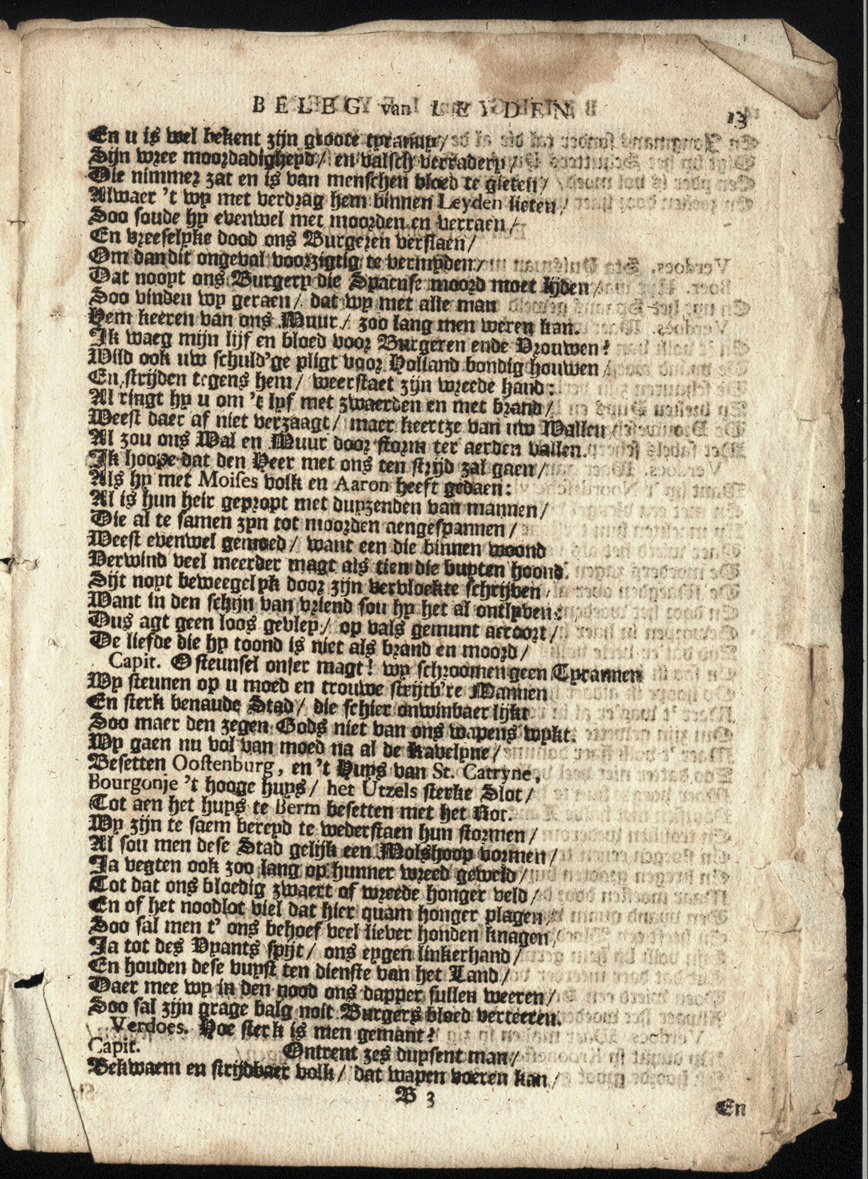 BELEG van LEYDEN. 13
En u is wel bekent zijn groote tyranny/
Sijn wree moordadigheyd/ en valsch verradery/
Die nimmer zat en is van menschen bloed te gieten/
Alwaer 't wy met verdrag hem binnen Leyden lieten/
Soo soude hy evenwel met moorden en verraen/
En vreeselyke dood ons Burgeren verslaen/
Om dan dit ongeval voorzigtig te vermyden/
Dat noopt ons Burgery die Spaense moord moet lyden/
Soo vinden wy geraen/ dat wy met alle man
Hem keeren van ons Muur/ zoo lang men weren kan.
Ik waeg mijn lijf en bloed voor Burgeren ende Vrouwen!
Wild ook uw schuld'ge pligt voor Holland bondig houwen/
En strijden tegens hem/ weerstaet zijn wreede hand:
Al ringt hy u om 't lyf met zwaerden en met brand/
Weest daer af niet verzaagt/ maer keertze van uw Wallen/
Al zou ons Wal en Muur door storm ter aerden vallen.
Ik hoope dat den Heer met ons ten strijd zal gaen/
Als hy met Moises volk en Aaron heeft gedaen:
Al is hun heir gepropt met duyzenden van mannen/
Die al te samen zyn tot moorden aengespannen/
Weest evenwel gemoed/ want een die binnen woond
Verwind veel meerder magt als tien die buyten hoond.
Sijt noyt beweegelyk door zijn vervloekte schrijven/
Want in den schijn van vriend sou hy het al ontlyven:
Dus agt geen loos gevley/ op vals gemunt accoort/
De liefde die hy toond is niet als brand en moord/
Capit. O steunsel onser magt! wy schroomen geen Tyrannen
Wy steunen op u moed en trouwe strijtb're Mannen
En sterk benaude Stad/ die schier onwinbaer lijkt
Soo maer den zegen Gods niet van ons wapens wykt.
Wy gaen nu vol van moed na al de Ravelyne/
Besetten Oostenburg, en 't Huys van St. Catryne,
Bourgonje 't hooge huys/ het Utzels sterke Slot/
Tot aen het huys te Berm besetten met het Rot.
Wy zijn te saem bereyd te wederstaen hun stormen/
Al sou men dese Stad gelijk een Molshoop vormen/
Ja vegten ook zoo lang op hunner wreed geweld/
Tot dat ons bloedig zwaert of wreede honger veld/
En of het noodlot viel dat hier quam honger plagen/
Soo sal men t' ons behoef veel liever honden knagen/
Ja tot des Vyants spijt/ ons eygen linkerhand/
En houden dese vuyst ten dienste van het Land/
Daer mee wy in den nood ons dapper sullen weeren/
Soo sal zijn grage balg noit Burgers bloed verteeren.
Verdoes. Hoe sterk is men gemant?
Capit. Ontrent zes duysent man/
Bekwaem en strijdbaer volk/ dat wapen voeren kan/
B 3
En